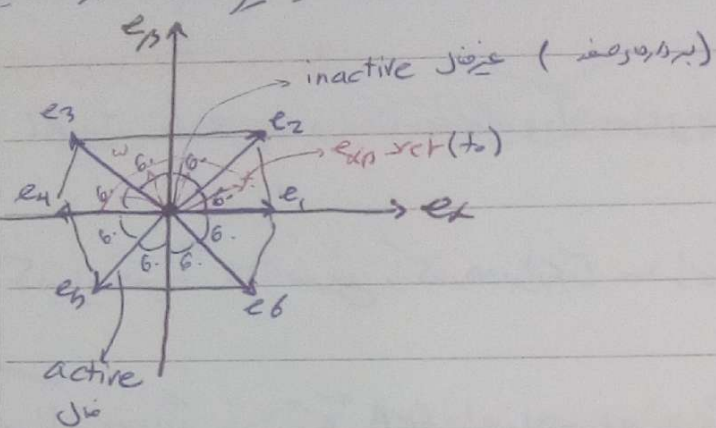 eβ
inactive غیرفعال (بردارهای صفر)
e3
e2
eαβ ref (t₀)
ω
60 60
60 60
e4
e1
eα
60 60
60 60
e5
e6
active
فعال